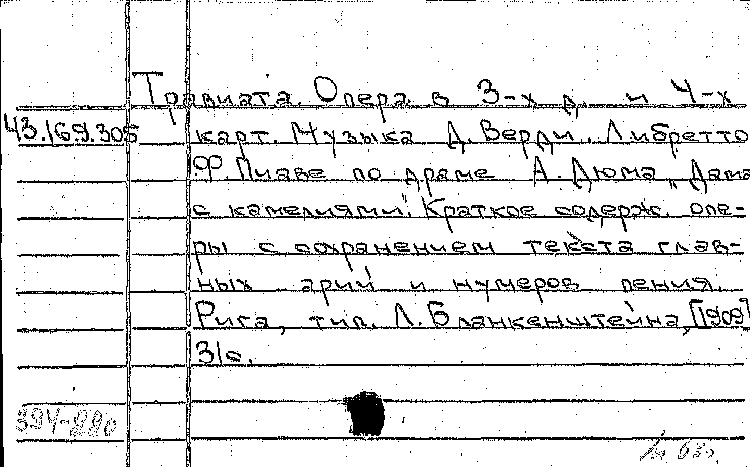 Травиата. Опера в 3-х д. и 4-х
43.169.305 карт. Музыка Д. Верди. Либретто
Ф. Пиаве по драме А. Дюма „Дама
с камелиями". Краткое содерж. опе-
ры с сохранением текста глав-
ных арий и нумеров пения.
Рига, тип. Л. Бланкенштейна, [1909]
31с.
394-220